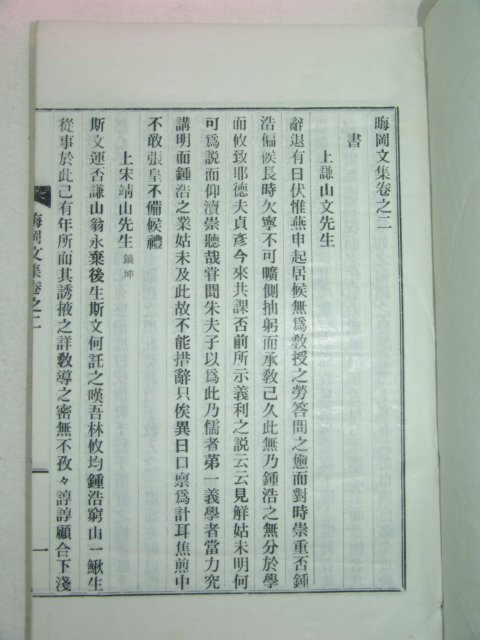 晦岡文集卷之二
書
上謙山文先生
辭退有日伏惟燕申起居候無爲敎授之勞答問之憊而對時崇重否鍾
浩偏候長時欠寧不可曠側抽躬而承敎已久此無乃鍾浩之無分於學
而攸致耶德夫貞彥今來共課否前所示義利之說云云見解姑未明何
可爲說而仰瀆崇聽哉甞聞朱夫子以爲此乃儒者第一義學者當力究
講明而鍾浩之業姑未及此故不能措辭只俟異日口禀爲計耳焦煎中
不敢張皇不備候禮
上宋靖山先生 鎬坤
斯文運否謙山翁永棄後生斯文何託之嘆吾林攸均鍾浩窮山一鰍生
從事於此已有年所而其誘掖之詳敎導之密無不孜々諄諄顧合下淺
晦岡文集卷之二
一